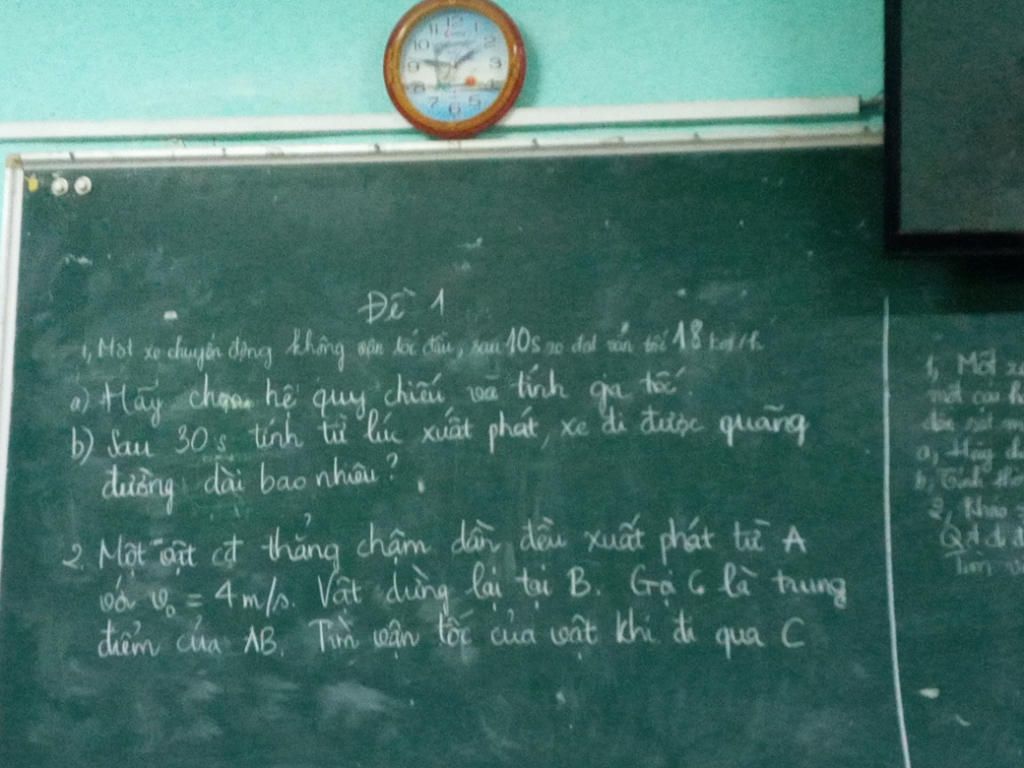 12
1
2
3
4
5
6
7
8
9
10
Đề 1
1, Một xe chuyển động không vận tốc đầu, sau 10s xe đạt vận tốc 18 km/h.
a) Hãy chọn hệ quy chiếu và tính gia tốc.
b) Sau 30s tính từ lúc xuất phát, xe đi được quãng
đường dài bao nhiêu?
2. Một vật cđ thẳng chậm dần đều xuất phát từ A
với v₀ = 4m/s. Vật dừng lại tại B. Gọi C là trung
điểm của AB. Tìm vận tốc của vật khi đi qua C
1, Một
một
a,
b, Tính
2, Khảo